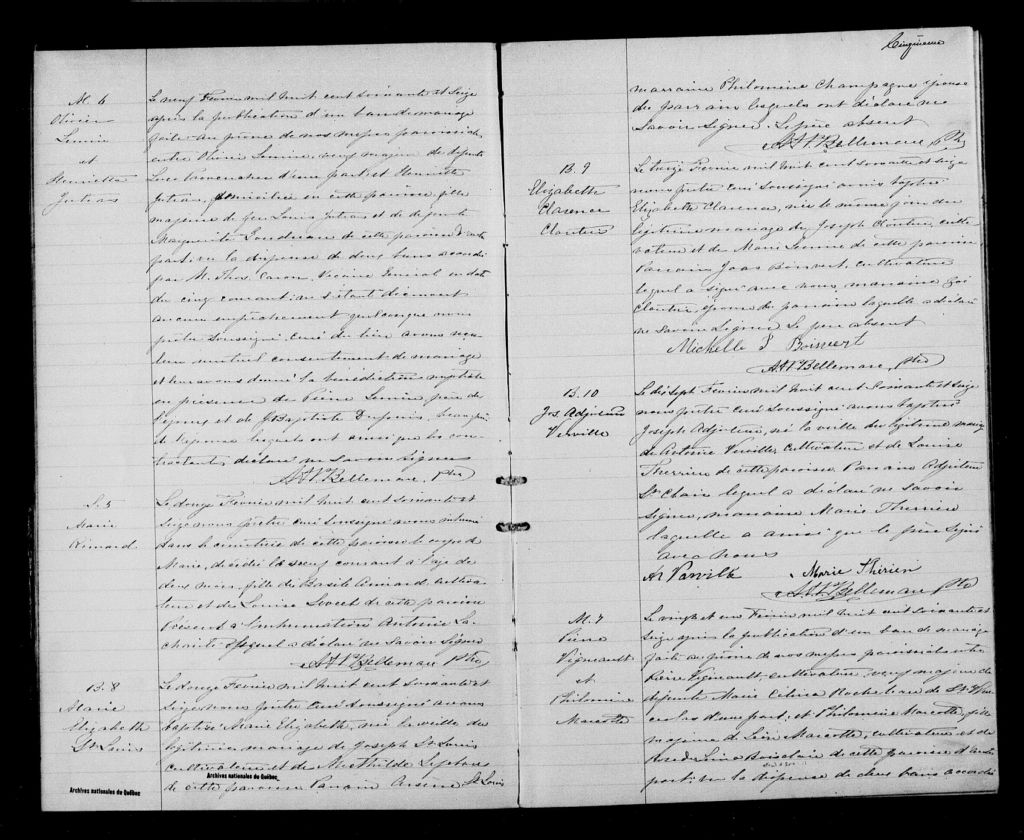 M. 6
Olivier
Lemire
et
Henriette
Jutras
Le neuf Février mil huit cent soixante et seize
après la publication d'un ban de mariage
faite au prône de nos messes paroissiales
entre Olivier Lemire, veuf majeur de défunte
d'une part et Henriette
Jutras, domiciliée en cette paroisse, fille
majeure de feu Louis Jutras et de défunte
Marguerite de cette paroisse d'autre
part, vu la dispense de deux bans accordé
par M. Thos. Caron, Vicaire Général en date
du cinq courant; ne s'étant découvert
aucun empêchement quelconque nous
prêtre soussigné curé du lieu avons reçu
leur mutuel consentement de mariage
et leur avons donné la bénédiction nuptiale
en présence de Lemire, père de
l'époux et de J. Baptiste Dupuis
de l'épouse lesquels ont ainsi que les con-
tractants, déclaré ne savoir signer
Bellemare, Ptre
S. 5
Marie
Le douze Février mil huit cent soixante et
seize nous prêtre curé soussigné avons inhumé
dans le cimetière de cette paroisse le corps de
Marie, décédée le neuf courant à l'age de
deux mois, fille de Basile cultiva-
teur et de Louise de cette paroisse
Présents à l'inhumation Antoine La-
lequel a déclaré ne savoir signer
Bellemare Ptre
B. 8
Marie
Elizabeth
St Louis
Le douze Février mil huit cent soixante et
seize nous prêtre curé soussigné avons
baptisé Marie Elizabeth, née la veille du
légitime mariage de Joseph St Louis
cultivateur et de Mathilde
de cette paroisse Parrain Arsène St Louis
Archives nationales du Québec
Archives nationales du Québec
Cinquième
marraine Philomène Champagne épouse
du parrain lesquels ont déclaré ne
savoir signer. Le père absent
Bellemare Ptre
B. 9
Elizabeth
Clarence
Cloutier
Le treize Février mil huit cent soixante et seize
nous prêtre curé soussigné avons baptisé
Elizabeth Clarence, née le même jour du
légitime mariage de Joseph Cloutier, culti-
vateur et de Marie Lemire de cette paroisse,
Parrain Boisvert, cultivateur
lequel a signé avec nous, marraine Zoé
Cloutier épouse du parrain laquelle a déclaré
ne savoir signer Le père absent
Michelle J Boisvert
Bellemare, Ptre
B. 10
Jos Adjuteur
Verville
Le dix sept Février mil huit cent soixante et seize
nous prêtre curé soussigné avons baptisé
Joseph Adjuteur, né la veille du légitime mariage
de Antoine Verville, cultivateur et de Louise
Therrien de cette paroisse. Parrain Adjuteur
St Clair lequel a déclaré ne savoir
signer, marraine Marie Therrien
laquelle a ainsi que le père signé
avec nous
Marie Therien
Bellemare Ptre
M. 7
Pierre
Vigneault
et
Philomène
Marcotte
Le vingt et un Février mil huit cent soixante et
seize après la publication d'un ban de mariage
faite au prône de nos messes paroissiales entre
Pierre Vigneault cultivateur, veuf majeur de
défunte Marie Célina Rocheleau de St
d'une part; et Philomène Marcotte, fille
majeure de Marcotte, cultivateur et de
Boisclair de cette paroisse d'autre
part; vu la dispense de deux bans accordée